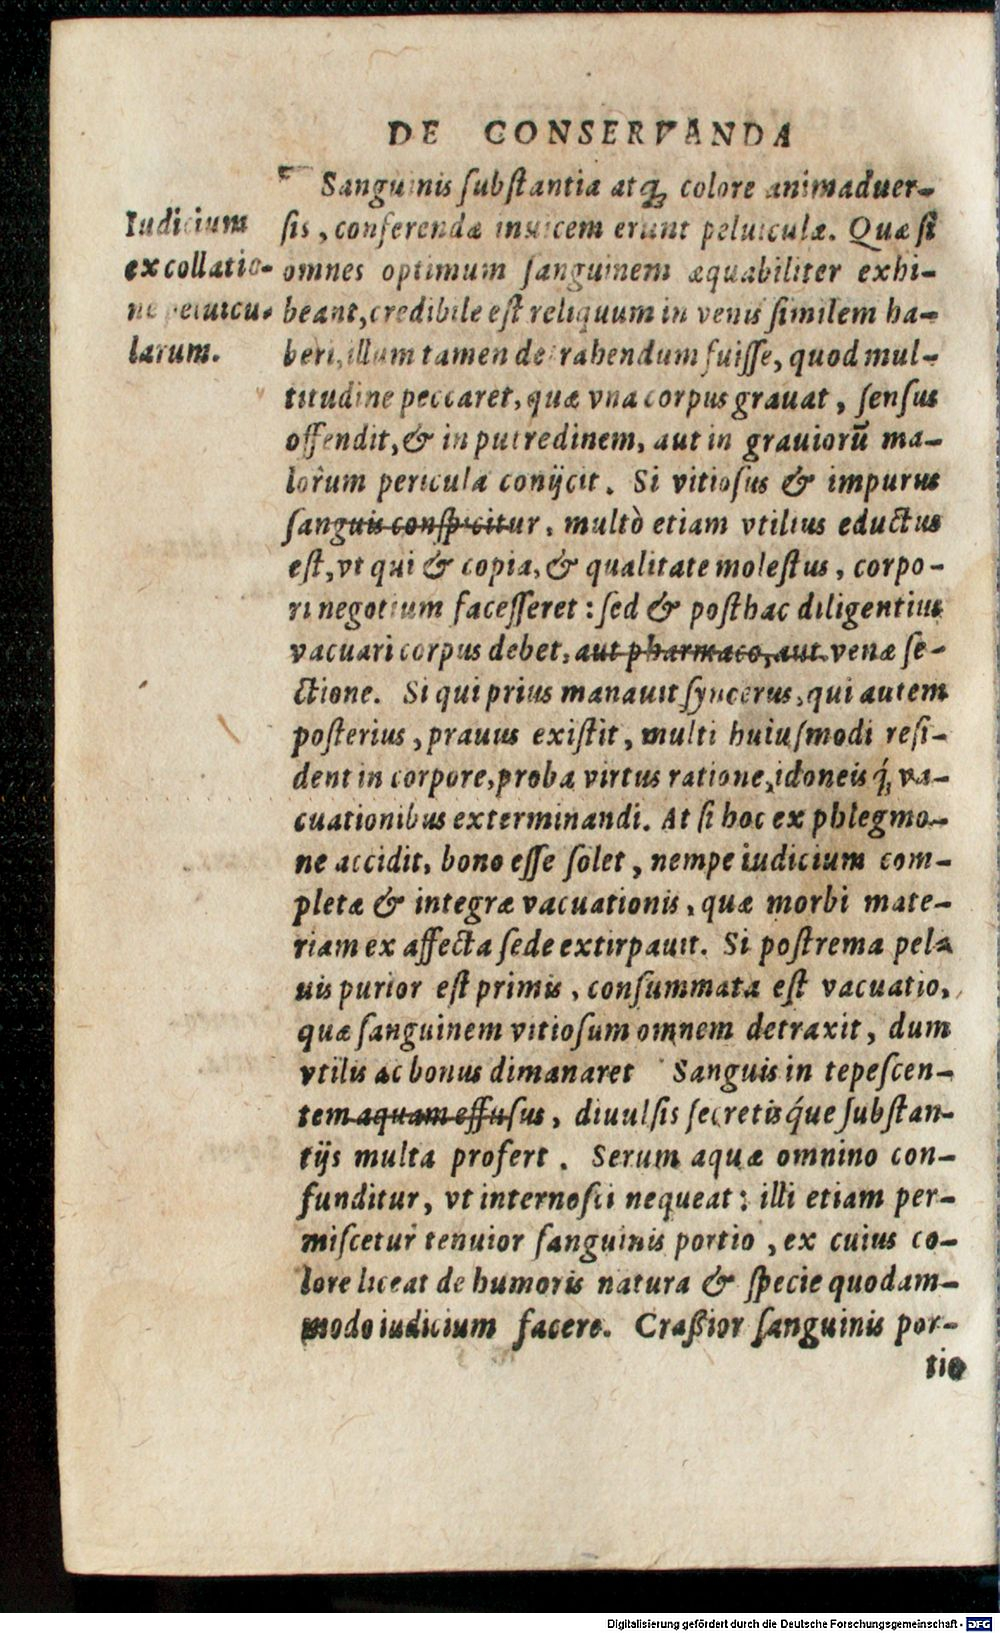 DE CONSERVANDA
Sanguinis ſubſtantia atq́; colore animaduer-
ſis, conferendæ inuicem erunt peluiculæ. Quæ ſi
omnes optimum ſanguinem æquabiliter exhi-
beant, credibile eſt reliquum in venis ſimilem ha-
beri, illum tamen detrahendum fuiſſe, quod mul-
titudine peccaret, quæ vna corpus grauat, ſenſus
offendit, & in putredinem, aut in grauiorū ma-
lorum pericula conijcit. Si vitioſus & impurus
ſanguis conſpicitur, multò etiam vtilius eductus
eſt, vt qui & copia, & qualitate moleſtus, corpo-
ri negotium faceſſeret: ſed & poſthac diligentius
vacuari corpus debet, aut pharmaco, aut venæ ſe-
ctione. Si qui prius manauit ſyncerus, qui autem
poſterius, prauus exiſtit, multi huiuſmodi reſi-
dent in corpore, proba virtus ratione, idoneis q́; va-
cuationibus exterminandi. At ſi hoc ex phlegmo-
ne accidit, bono eſſe ſolet, nempe iudicium com-
pletæ & integræ vacuationis, quæ morbi mate-
riam ex affecta ſede extirpauit. Si poſtrema pel-
uis purior eſt primis, conſummata eſt vacuatio,
quæ ſanguinem vitioſum omnem detraxit, dum
vtilis ac bonus dimanaret Sanguis in tepeſcen-
tem aquam effuſus, diuulſis ſecretisq́ue ſubſtan-
tijs multa profert. Serum aquæ omnino con-
funditur, vt internoſci nequeat: illi etiam per-
miſcetur tenuior ſanguinis portio, ex cuius co-
lore liceat de humoris natura & ſpecie quodam-
modo iudicium facere. Craßior ſanguinis por-
tio
Iudicium
ex collatio-
ne peluicu-
larum.
Digitalisierung gefördert durch die Deutsche Forschungsgemeinschaft - DFG